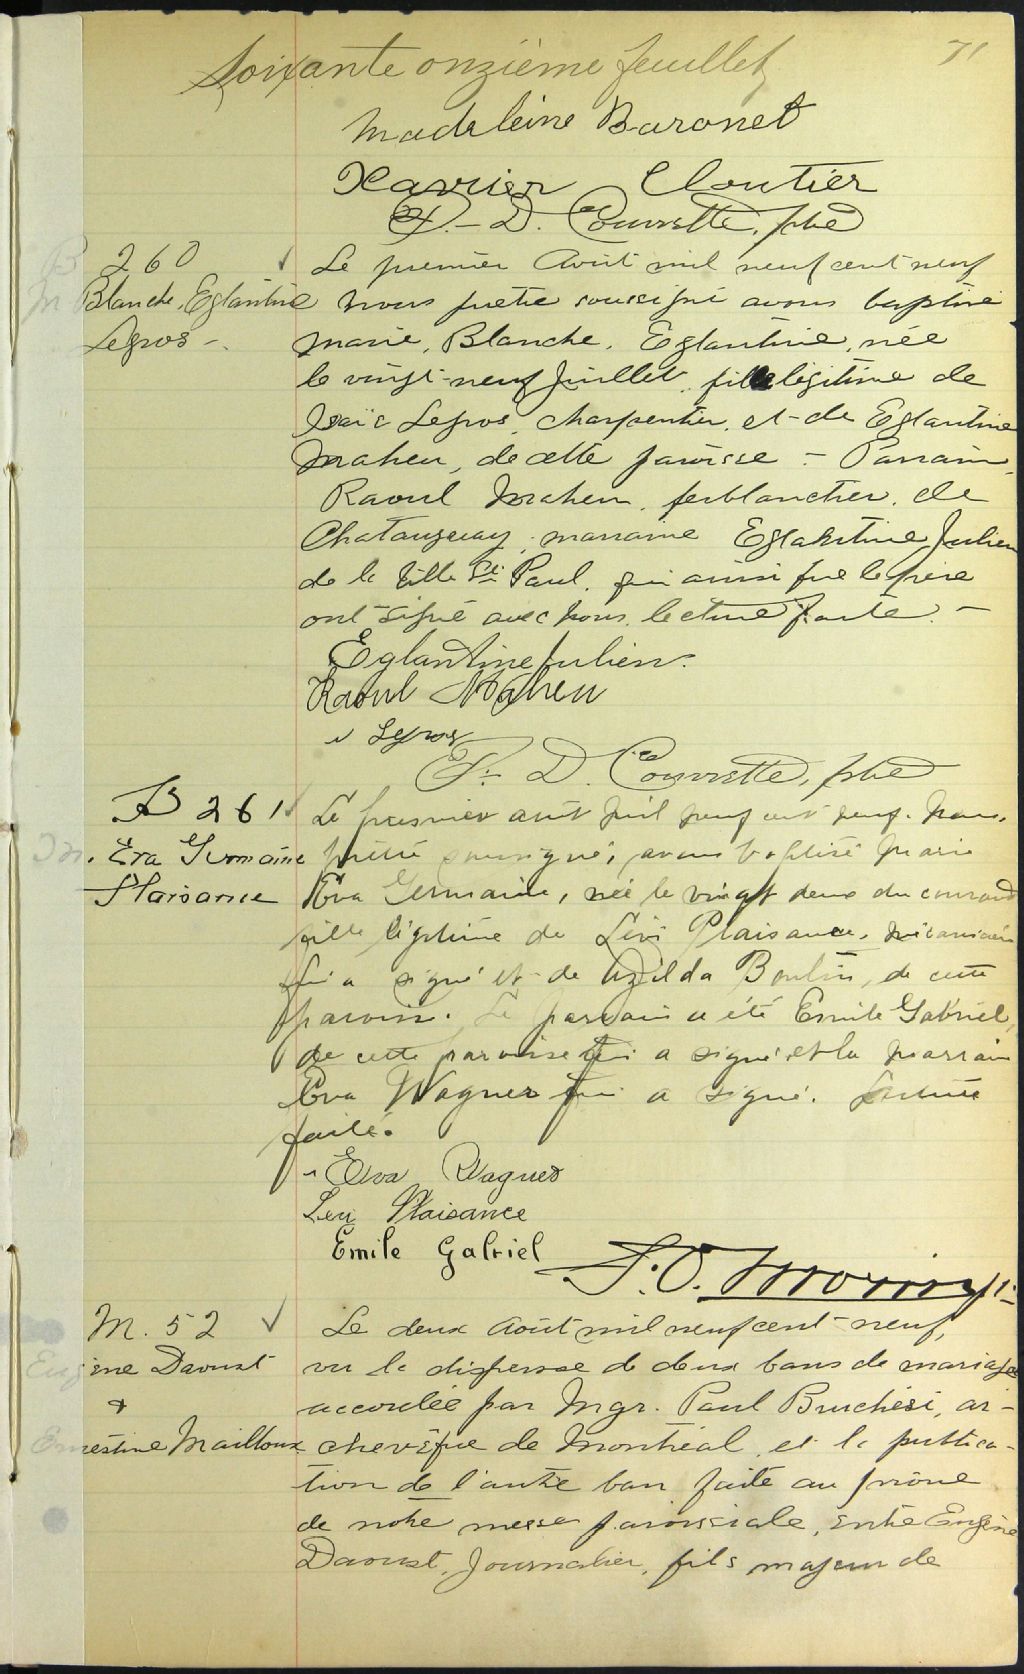 Soixante onzième feuillet
71
Madeleine Baronet
Xavier Cloutier
F.-D. Courvette, ptre
B 260
M Blanche, Eglantine
Legros -
Le premier Août mil neuf cent neuf
nous prêtre soussigné avons baptisé
Marie, Blanche, Eglantine, née
le vingt-neuf Juillet, fille légitime de
Isaïe Legros, charpentier, et de Eglantine
Maheu, de cette paroisse - Parrain,
Raoul Maheu, ferblantier, de
Chatauguay, marraine Eglantine Julien
de la Ville St Paul, qui ainsi que le père
ont signé avec nous. lecture faite. -
Eglantine Julien.
Raoul Maheu
I Legros
F.- D. Courvette, ptre
B 261
M. Eva Germaine
Plaisance
Le premier août mil neuf cent neuf. Nous,
prêtre soussigné, avons baptisé Marie
Eva Germaine, née le vingt deux du courant
fille légitime de Lévi Plaisance, mécanicien
qui a signé et de Azilda Boutin, de cette
paroisse. Le parrain a été Emile Gabriel,
de cette paroisse qui a signé et la marraine
Eva Wagner qui a signé. Lecture
faite.
Elva Wagner
Levi Plaisance
Emile Gabriel
M. 52
Eugène Daoust
&
Ernestine Mailloux
Le deux Août mil neuf cent neuf,
vu la dispense de deux bans de mariage
accordée par Mgr. Paul Bruchési, ar-
chevêque de Montréal et la publica-
tion de l'autre ban faite au prône
de notre messe paroissiale, entre Eugène
Daoust, Journalier, fils majeur de